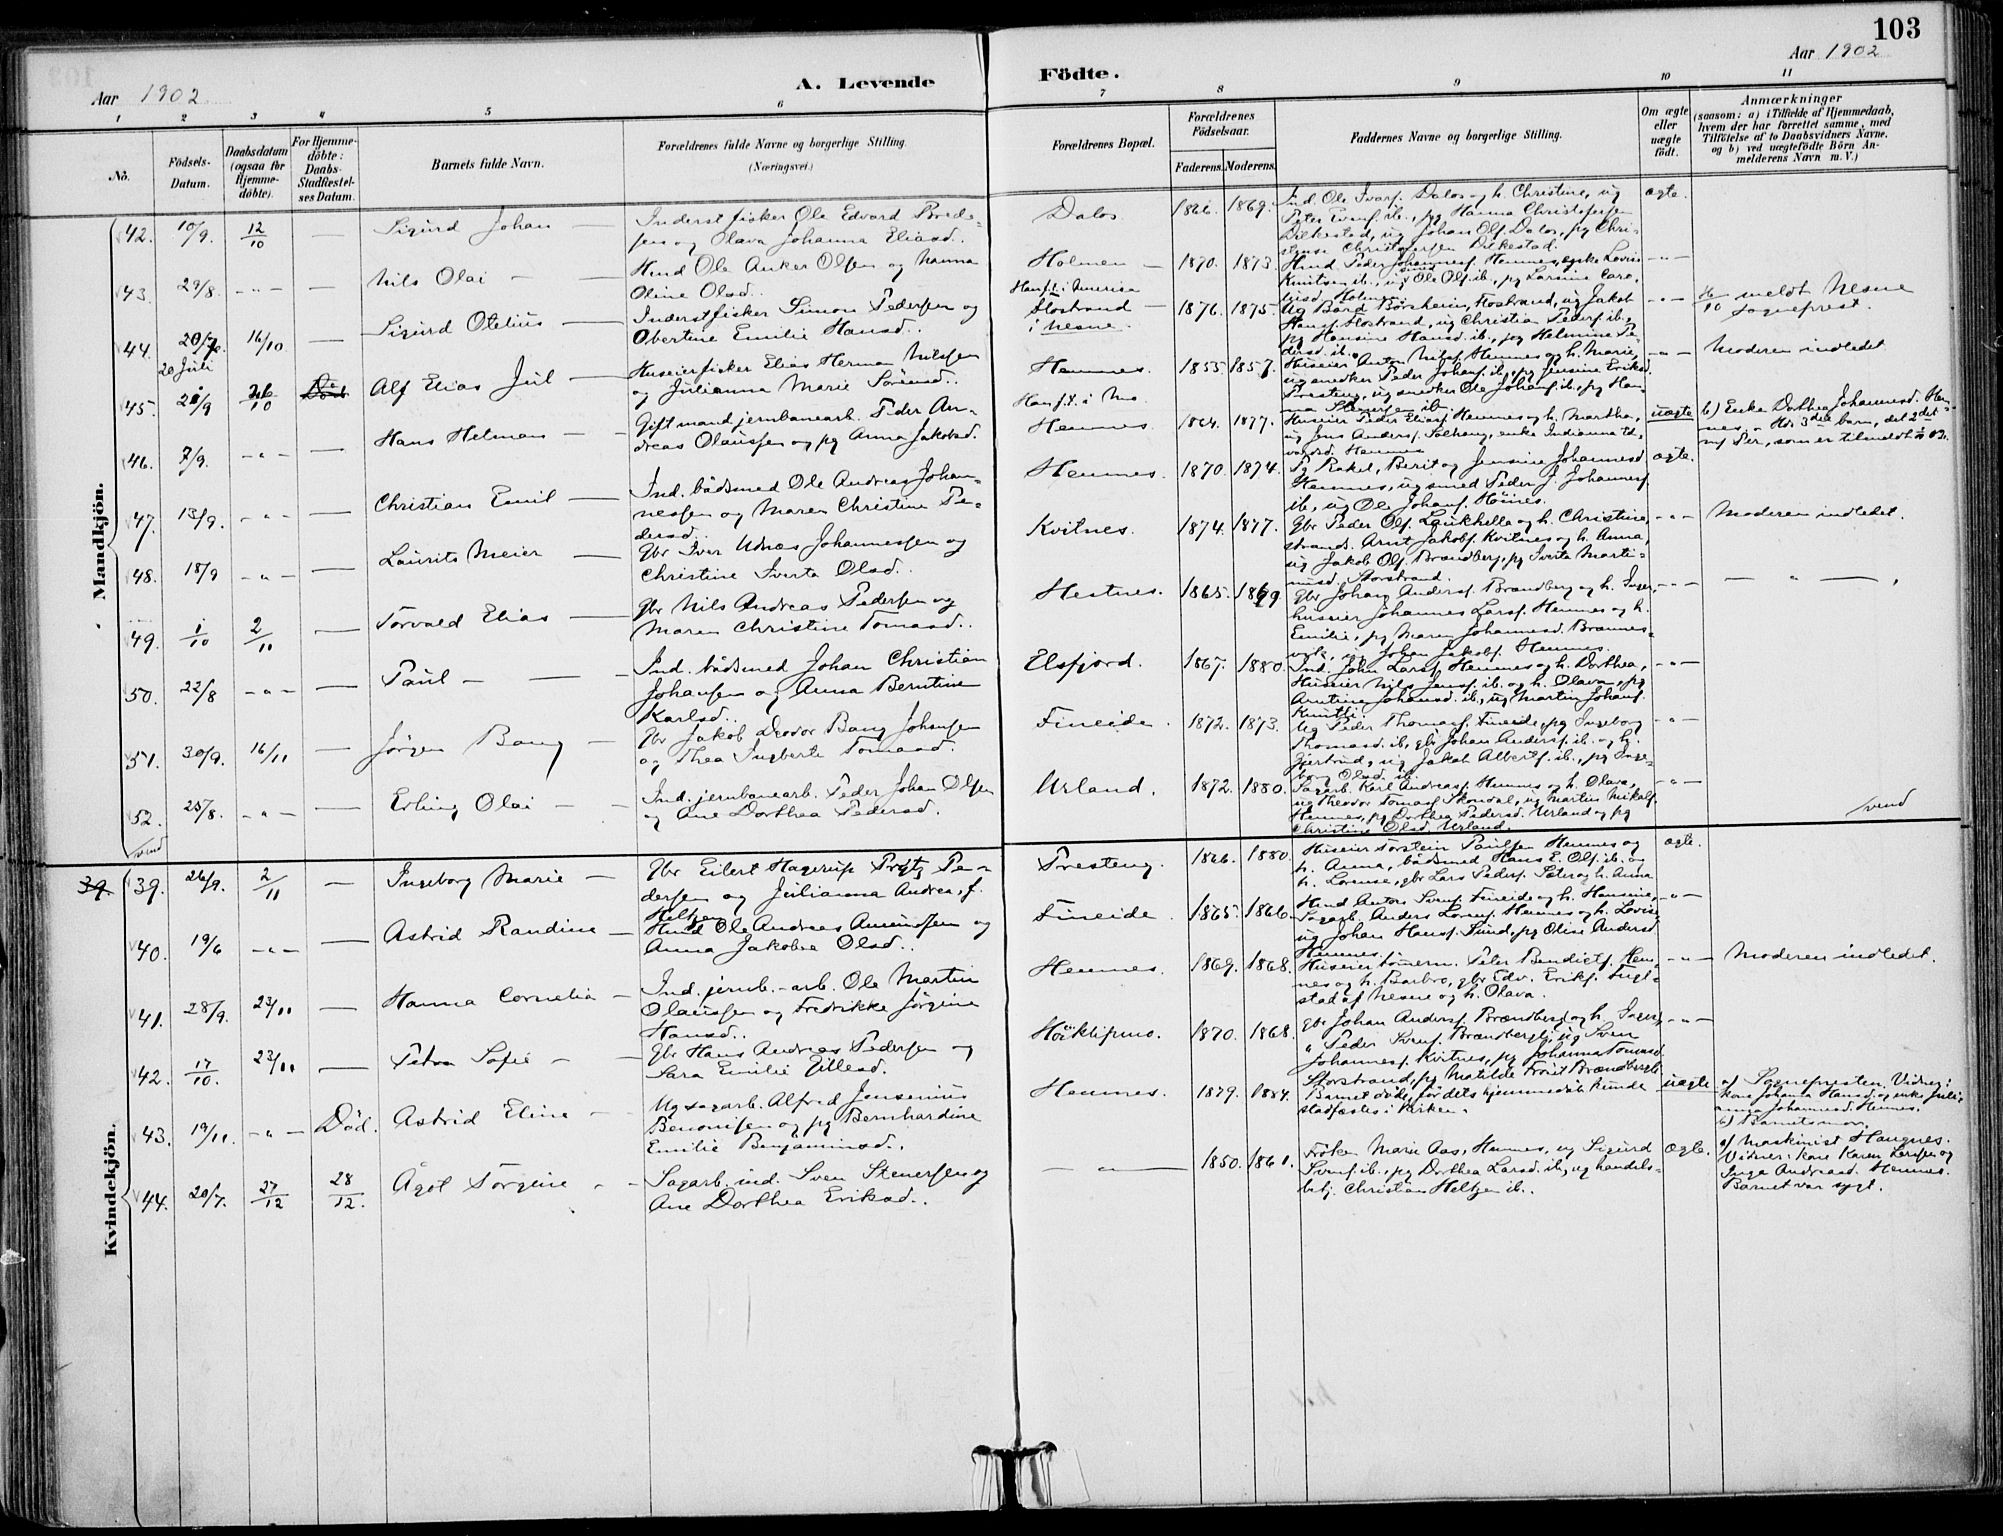 103
Aar 1902
A. Levende Födte.
Aar 1902
1 2 3 4 5 6 7 8 9 10 11
No.
Födsels-Datum.
Daabsdatum (ogsaa for Hjemme-döbte).
For Hjemme-döbte: Daabs-Stadfæstel-ses Datum.
Barnets fulde Navn.
Forældrenes fulde Navne og borgerlige Stilling.
(Næringsvei.)
Forældrenes Bopæl.
Forældrenes Födselsaar.
Faderens. Moderens.
Faddernes Navne og borgerlige Stilling.
Om ægte eller uægte födt.
Anmærkninger
(saasom: a) i Tilfælde af Hjemmedaab, hvem der har forrettet samme, med Tilföielse af to Daabsvidners Navne. og b) ved uægtefödte Börn An-melderens Navn m. V.)
Mandkjön.
42. 10/9. 12/10 — Sigurd Johan —
Inderst fisker Ole Edvard
og Olava Johanna Eliasd.
Dalos. 1866. 1869.
Ind. Ole Ivarsf. Dalos og h. Christine, ug
Peter Evensf. ib., pg Hanna Christofersen
Dilkestad, ug Johan Olsf. Dalos, pg Chri-
Christofersen Dilkestad.
ægte.
43. 29/8. -"- — Nils Olai —
Hmd Ole Anker Olsen og Hanna
Oline Olsd.
Holmen — 1870. 1873.
Hmd. Peder Johannesf. Hemnes, enke Lovise
Knutsen ib., ug Ole Olsf. ib., pg Larsine Caro-
Holmen.
-"-
44. 20/7. 16/10 — Sigurd Otelius —
20 Juli
Inderst fisker Simon Pedersen og
Obertine Emilie Hansd.
Han f. i Amerika
Slostrand — i Nesne.
1876. 1875.
Ug Bård Börsheim, ug Jakob
Hansf. Slostrand, ug Christian Pedersf. ib.,
pg Hansine Hansd. ib., pg Helmine Pe-
dersd. ib.
-"-
meldt Nesne
sogneprest.
45. 26/10 Död Alf Elias Jul —
Huseier fisker Elias Herman Nilssen
og Julianna Marie Sörensd.
Hemnes. 1855. 1857.
Huseier Anton Nilsf. Hemnes og h. Marie,
ug snedker Peder Johansf. ib., pg Jensine Eriksd.
Presteng, ug snedker Ole Johansf. ib., pg Han-
-"-
Moderen indledet.
46. 7/9. -"- — Hans Helman —
Gift mand jernbanearb. Peder An-
dreas Olaussen og pg Anna Jakobsd.
Han f. i Mo.
Hemnes — 1864. 1877.
Huseier Peder Eliasf. Hemnes og h. Martha,
ug Jens Andersf. Solheng, enke Indianna
Hemnes
uægte
b) Enke Dorthea Johannesd. Hem-
nes. - Hds 3die barn, det 2det
m/ Per, som er tilmeldt
47. 13/9. -"- — Christian Emil —
Ind. bådsmed Ole Andreas Johan-
nessen og Maren Christine Pe-
dersd.
Hemnes. 1870. 1874.
Pg Rakel, Berit og Jensine Johannesd.
Hemnes, ug smed Peder J. Johannesf.
ib., ug Ole Johansf.
ægte.
48. 18/9 -"- — Laurits Meier —
Gbr Iver Udnæs Johannessen og
Christine Iverta Olsd.
Kvitnes. 1874. 1877.
Gbr Peder Olsf. Laukhella og h. Christine,
strands. Arnt Jakobsf. Kvitnes og h. Anna,
ug Jakob Olsf. Brændberg, pg Iverta Marti-
nusd. Storstrand.
-"-
Moderen indledet.
49. 1/10 2/11 — Torvald Elias —
Gbr Nils Andreas Pedersen og
Maren Christine Tomasd.
Hestnes. 1865. 1869
Gbr Johan Andersf. Brændberg og h. Inger,
huseier Johannes Larsf. Hemnes og h.
Emilie, pg Maren Johannesd. Brænnes-
ug Johan Jakobsf. Hemnes.
-"-
— " —
50. 22/8 -"- — Paul —
Ind. bådsmed Johan Christian
Johansen og Anna Berntine
Karlsd.
Elsfjord. 1867. 1880.
Ind. John Larsf. Hemnes og h. Dorthea,
Huseier Nils Jensf. ib. og h. Olava, pg
Anstine Johansd. ib., ug Martin Johansf.
-"-
51. 30/9. 16/11 — Jörgen Bang —
Gbr Jakob Deodor Bang Johnsen
og Thea Ingberte Tomasd.
Fineide. 1872. 1873.
Ug Peder Thomasf. Fineide, pg Ingeborg
Thomasd. ib., gbr Johan Andersf. ib. og h.
Gjertrud, ug Jakob Albertsf. ib., pg Inge-
borg Olsd. ib.
-"-
52. 25/8. -"- — Erling Olai —
vend
Ind. jernbanearb. Peder Johan Olsen
og Ane Dorthea Pedersd.
Urland. 1872. 1880.
Sagarb. Karl Andreasf. Hemnes og h. Olava,
ug Theodor Tomasf. Skondal, ug Martin Mikalsf.
Hemnes, pg Dorthea Pedersd. Urland og pg
Christine Olsd. Urland.
-"-
vend
Kvindekjön.
39. 39. 26/9. 2/11 — Ingeborg Marie —
Gbr Eilert Hagerup Prytz Pe-
dersen og Julianna Andrea, f.
Heltzen
Presteng. 1866. 1880.
Huseier Torstein Paulsen Hemnes og
h. Anna, bådsmed Hans E. Olsf. ib. og
h. Lorense, gbr Lars Pedersf. Sæter og h. Anna
ægte.
40. 19/6 -"- — Astrid Randine —
Hmd Ole Andreas Amundsen og
Anna Jakobea Olsd.
Fineide. 1865. 1866.
Hmd Anton Svensf. Fineide og h. Hansine,
Sagarb. Anders Lorensf. Hemnes og h. Lovise,
ug Johan Hansf. Sund, pg Olise Andersd.
Hemnes.
-"-
41. 28/9. 23/11 — Hanna Cornelia —
Ind. jernb.-arb. Ole Martin
Olaussen og Fredrikke Jörgine
Hansd.
Hemnes. 1869. 1868.
Huseier tömmerm. Peter Bendictsf. Hem-
nes og h. Barbro, gbr Edv. Eriksf. Fugl-
stad af Nesne og h. Olava.
-"-
Moderen indledet.
42. 17/10. 23/11 — Petra Sofie —
Gbr Hans Andreas Pedersen og
Sara Emilie Eilesd.
1870. 1868.
Gbr Johan Andersf. Brændberg og h. Inger,
" Peder Svensf. Brændberg, ug Sven
Johannesf. Kvitnes, pg Johanna Tomasd.
Storstrand, pg Matilde
-"-
43. 19/11. -"- Död. Astrid Eline —
Ug sagarb. Alfred Jensenius
Benonisen og pg Bernhardine
Emilie Benjaminsd.
Hemnes. 1879. 1884.
Barnet döde, för dets hjemmedåb kunde
stadfæstes i kirken.
uægte
a) Sognepresten. Vidner:
kone Johanna Hansd. og enke Juli-
anna Johannesd. Hemnes.
b) Barnets mor.
44. 20/7. 27/12 28/12. Ågot Törgine —
Sagarb. ind. Sven Stenersen og
Ane Dorthea Eriksd.
— " — 1850. 1861.
Fröken Marie Aas, Hemnes, ug Sigurd
Svensf. ib., pg Dorthea Larsd. ib., ug handels-
betj. Christian Heltzen ib.
ægte.
a) Maskinist Haugnes.
Vidner: kone Karen Larsen og
Inga Andreasd. Hemnes.
Barnet var sygt.